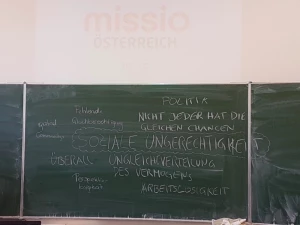 missio
ÖSTERREICH
POLITIK
Fehlende
Gleichberechtigung
NICHT JEDER HAT DIE
GLEICHEN CHANCEN
SOZIALE UNGERECHTIGKEIT
ÜBERALL
UNGLEICHVERTEILUNG
DES VERMÖGENS
ARBEITSLOSIGKEIT